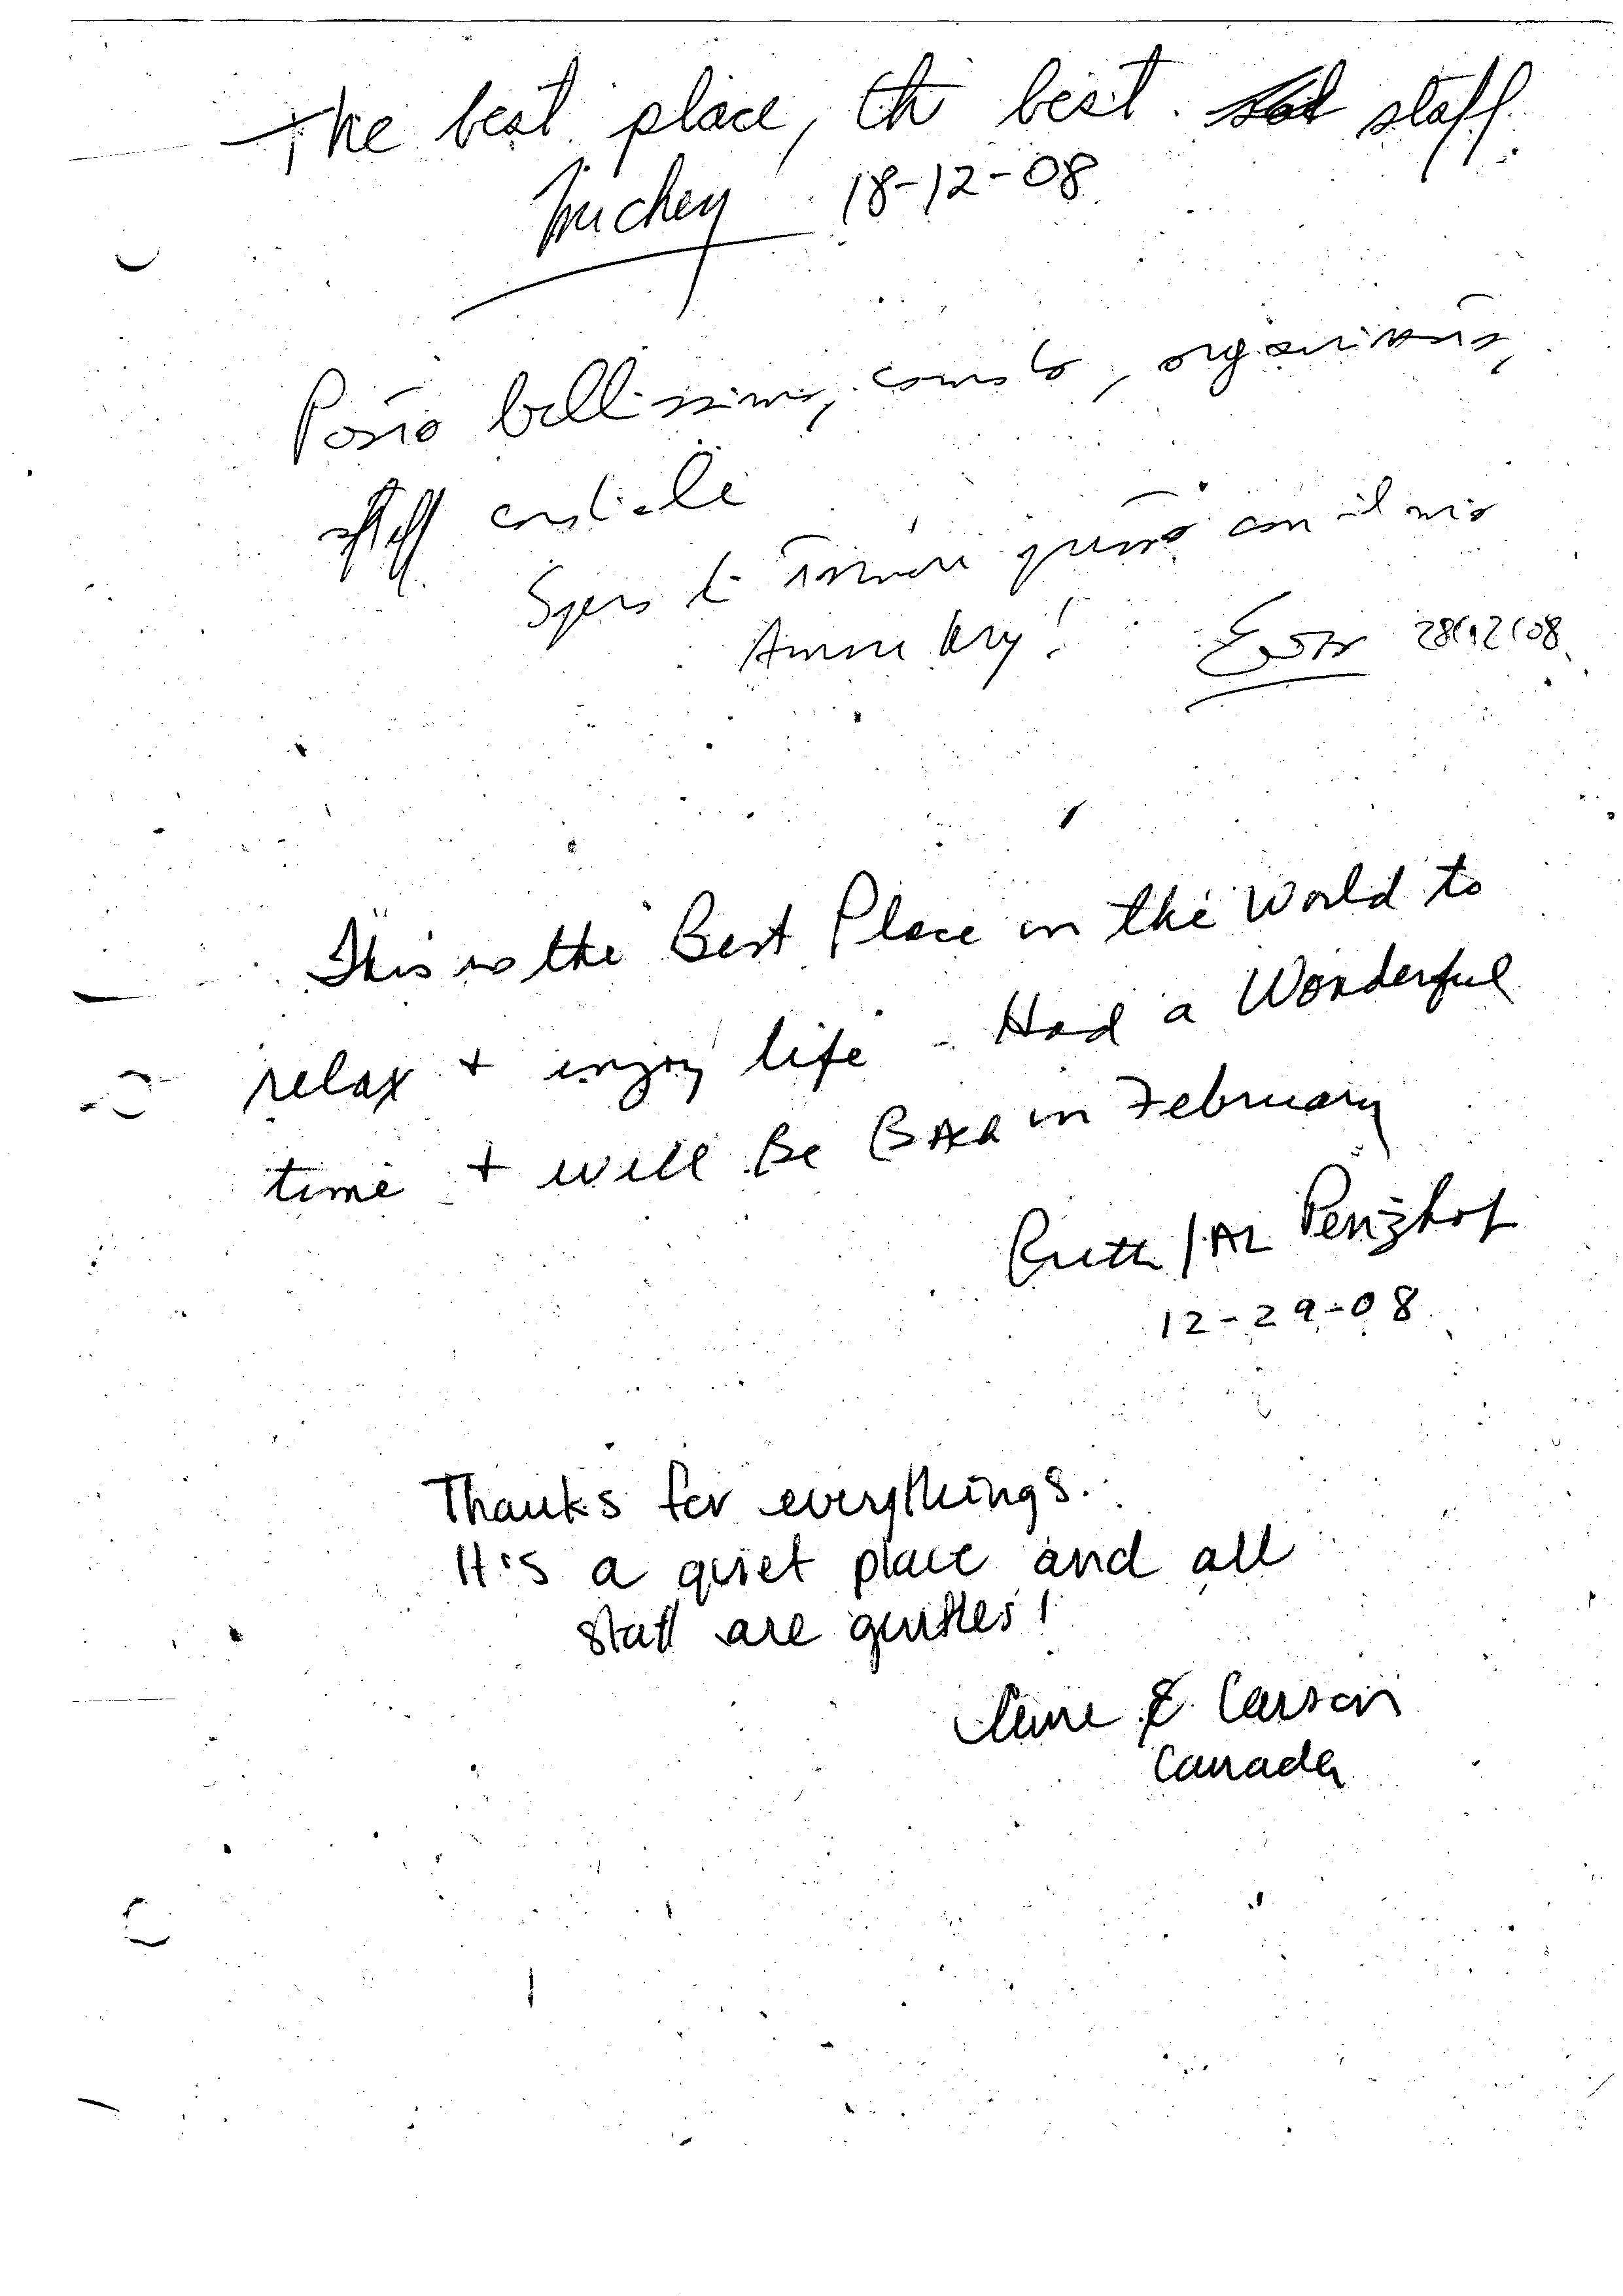 The best place, th best. staff.
18-12-08
Posto bellissimo, comodo, organizzato,
staff cordiale
Spero di tornare presto con il mio
Amore 28/12/08
This is the Best Place in the World to
relax + enjoy life - Had a Wonderful
time + will Be Back in February
Ruth / AL
12-29-08
Thanks for everythings.
It's a quiet place and all
staff are gentles!
& Carson
Canada